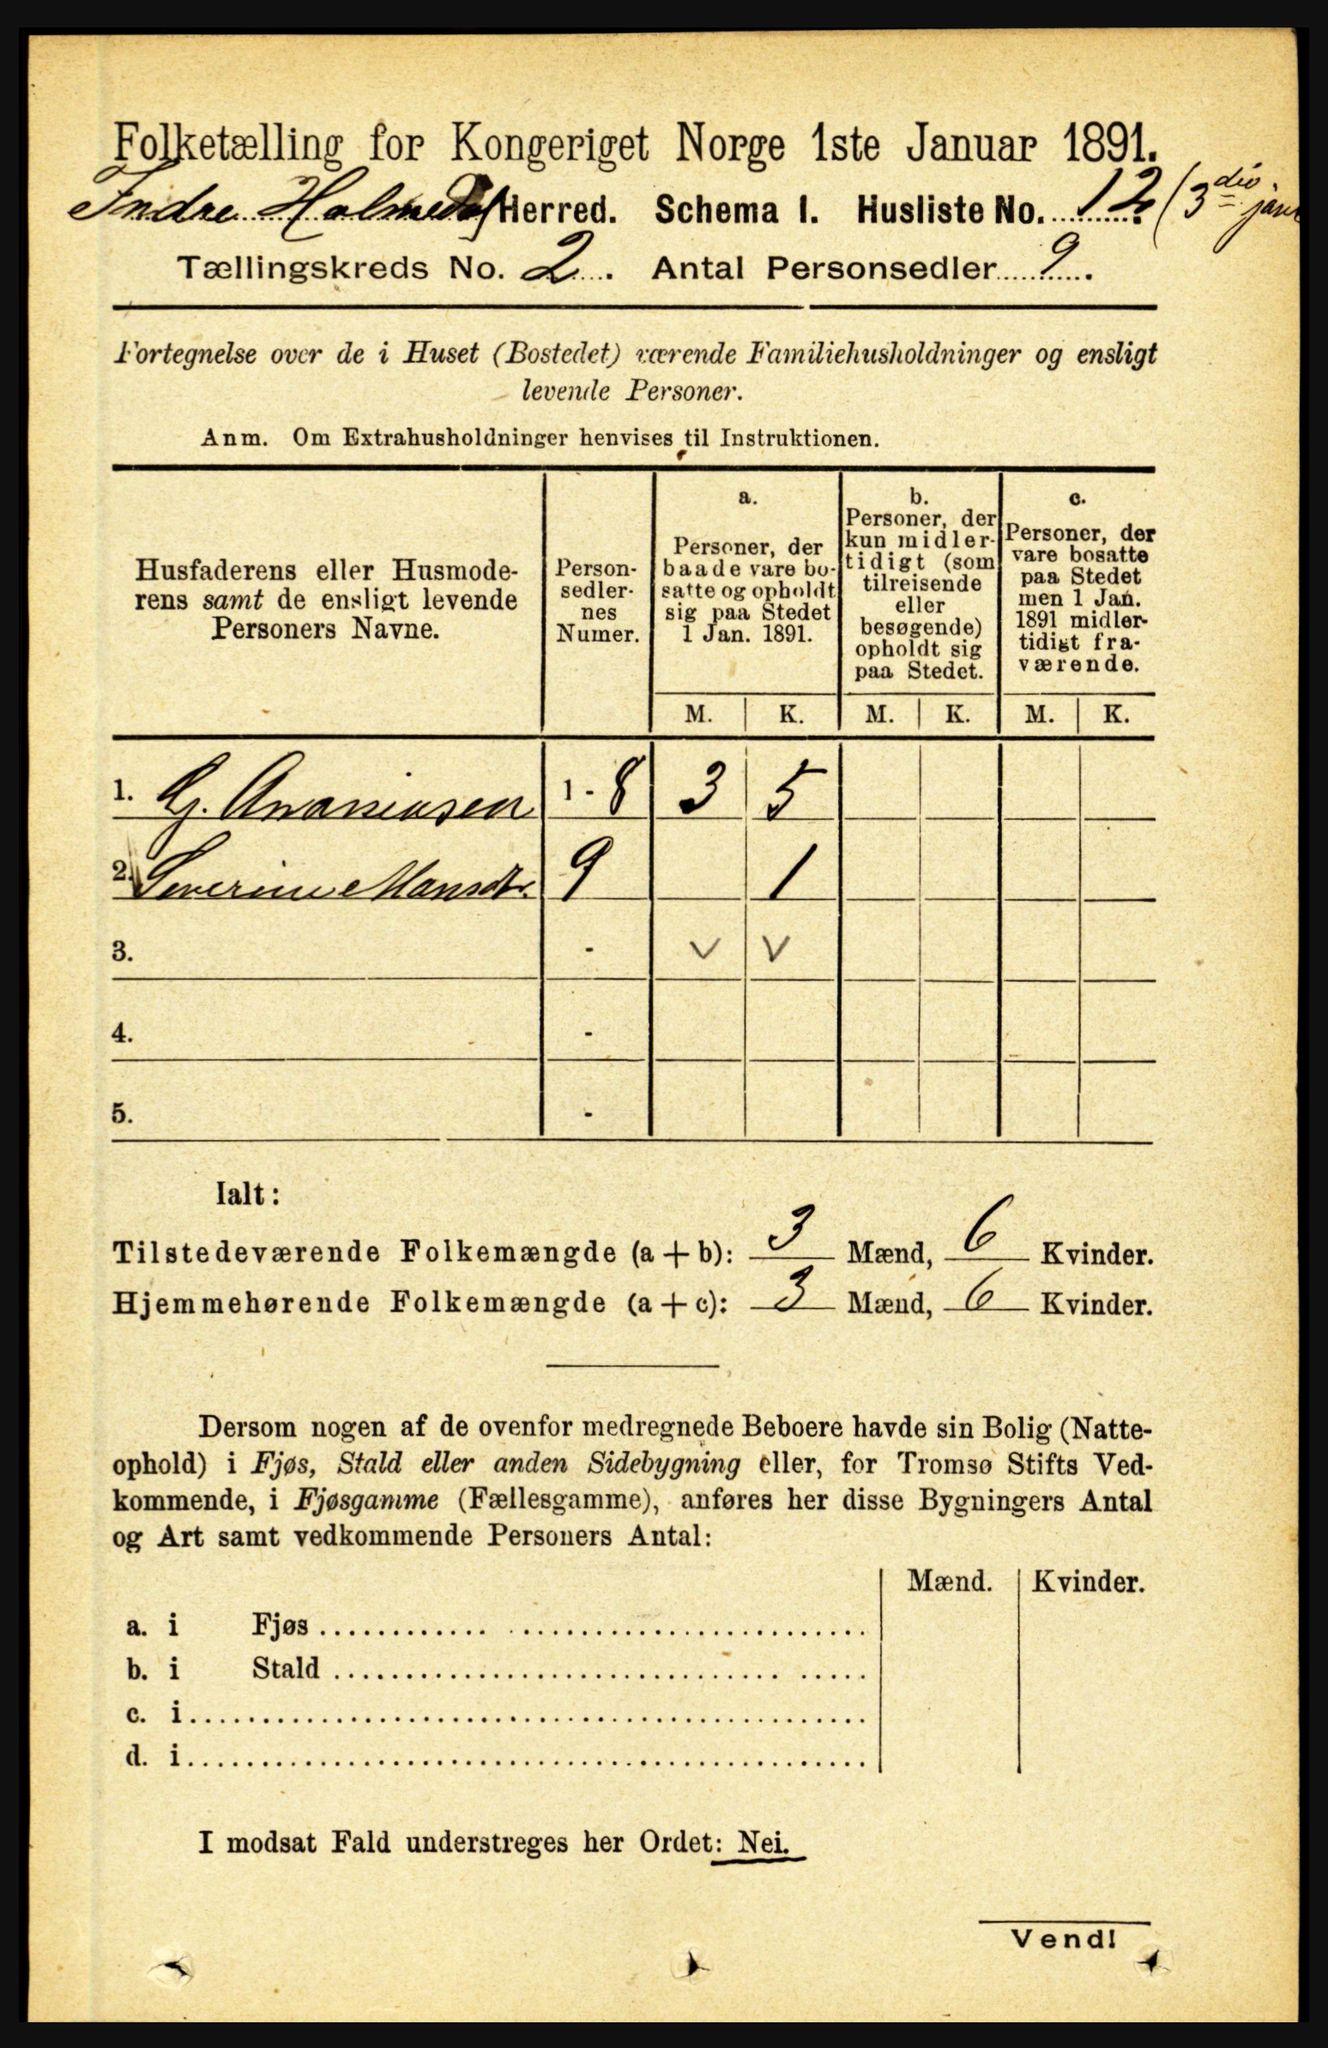 Folketælling for Kongeriget Norge 1ste Januar 1891.
Indre Holmedal Herred. Schema I. Husliste No. 12 (3die jan
Tællingskreds No. 2. Antal Personsedler 9.
Fortegnelse over de i Huset (Bostedet) værende Familiehusholdninger og ensligt
levende Personer.
Anm. Om Extrahusholdninger henvises til Instruktionen.
Husfaderens eller Husmode-
rens samt de ensligt levende
Personers Navne.
Person-
sedler-
nes
Numer.
a.
Personer, der
baade vare bo-
satte og opholdt
sig paa Stedet
1 Jan. 1891.
b.
Personer, der
kun midler-
tidigt (som
tilreisende
eller
besøgende)
opholdt sig
paa Stedet.
c.
Personer, der
vare bosatte
paa Stedet
men 1 Jan.
1891 midler-
tidigt fra-
værende.
M. K. M. K. M. K.
1. G. Ananiasen 1 - 8 3 5
2. Severine Mansdtr. 9 1
3. - v v
4. -
5. -
Ialt:
Tilstedeværende Folkemængde (a + b): 3 Mænd, 6 Kvinder.
Hjemmehørende Folkemængde (a + c): 3 Mænd, 6 Kvinder.
Dersom nogen af de ovenfor medregnede Beboere havde sin Bolig (Natte-
ophold) i Fjøs, Stald eller anden Sidebygning eller, for Tromsø Stifts Ved-
kommende, i Fjøsgamme (Fællesgamme), anføres her disse Bygningers Antal
og Art samt vedkommende Personers Antal:
Mænd. Kvinder.
a. i Fjøs
b. i Stald
c. i
d. i
I modsat Fald understreges her Ordet: Nei.
Vend!